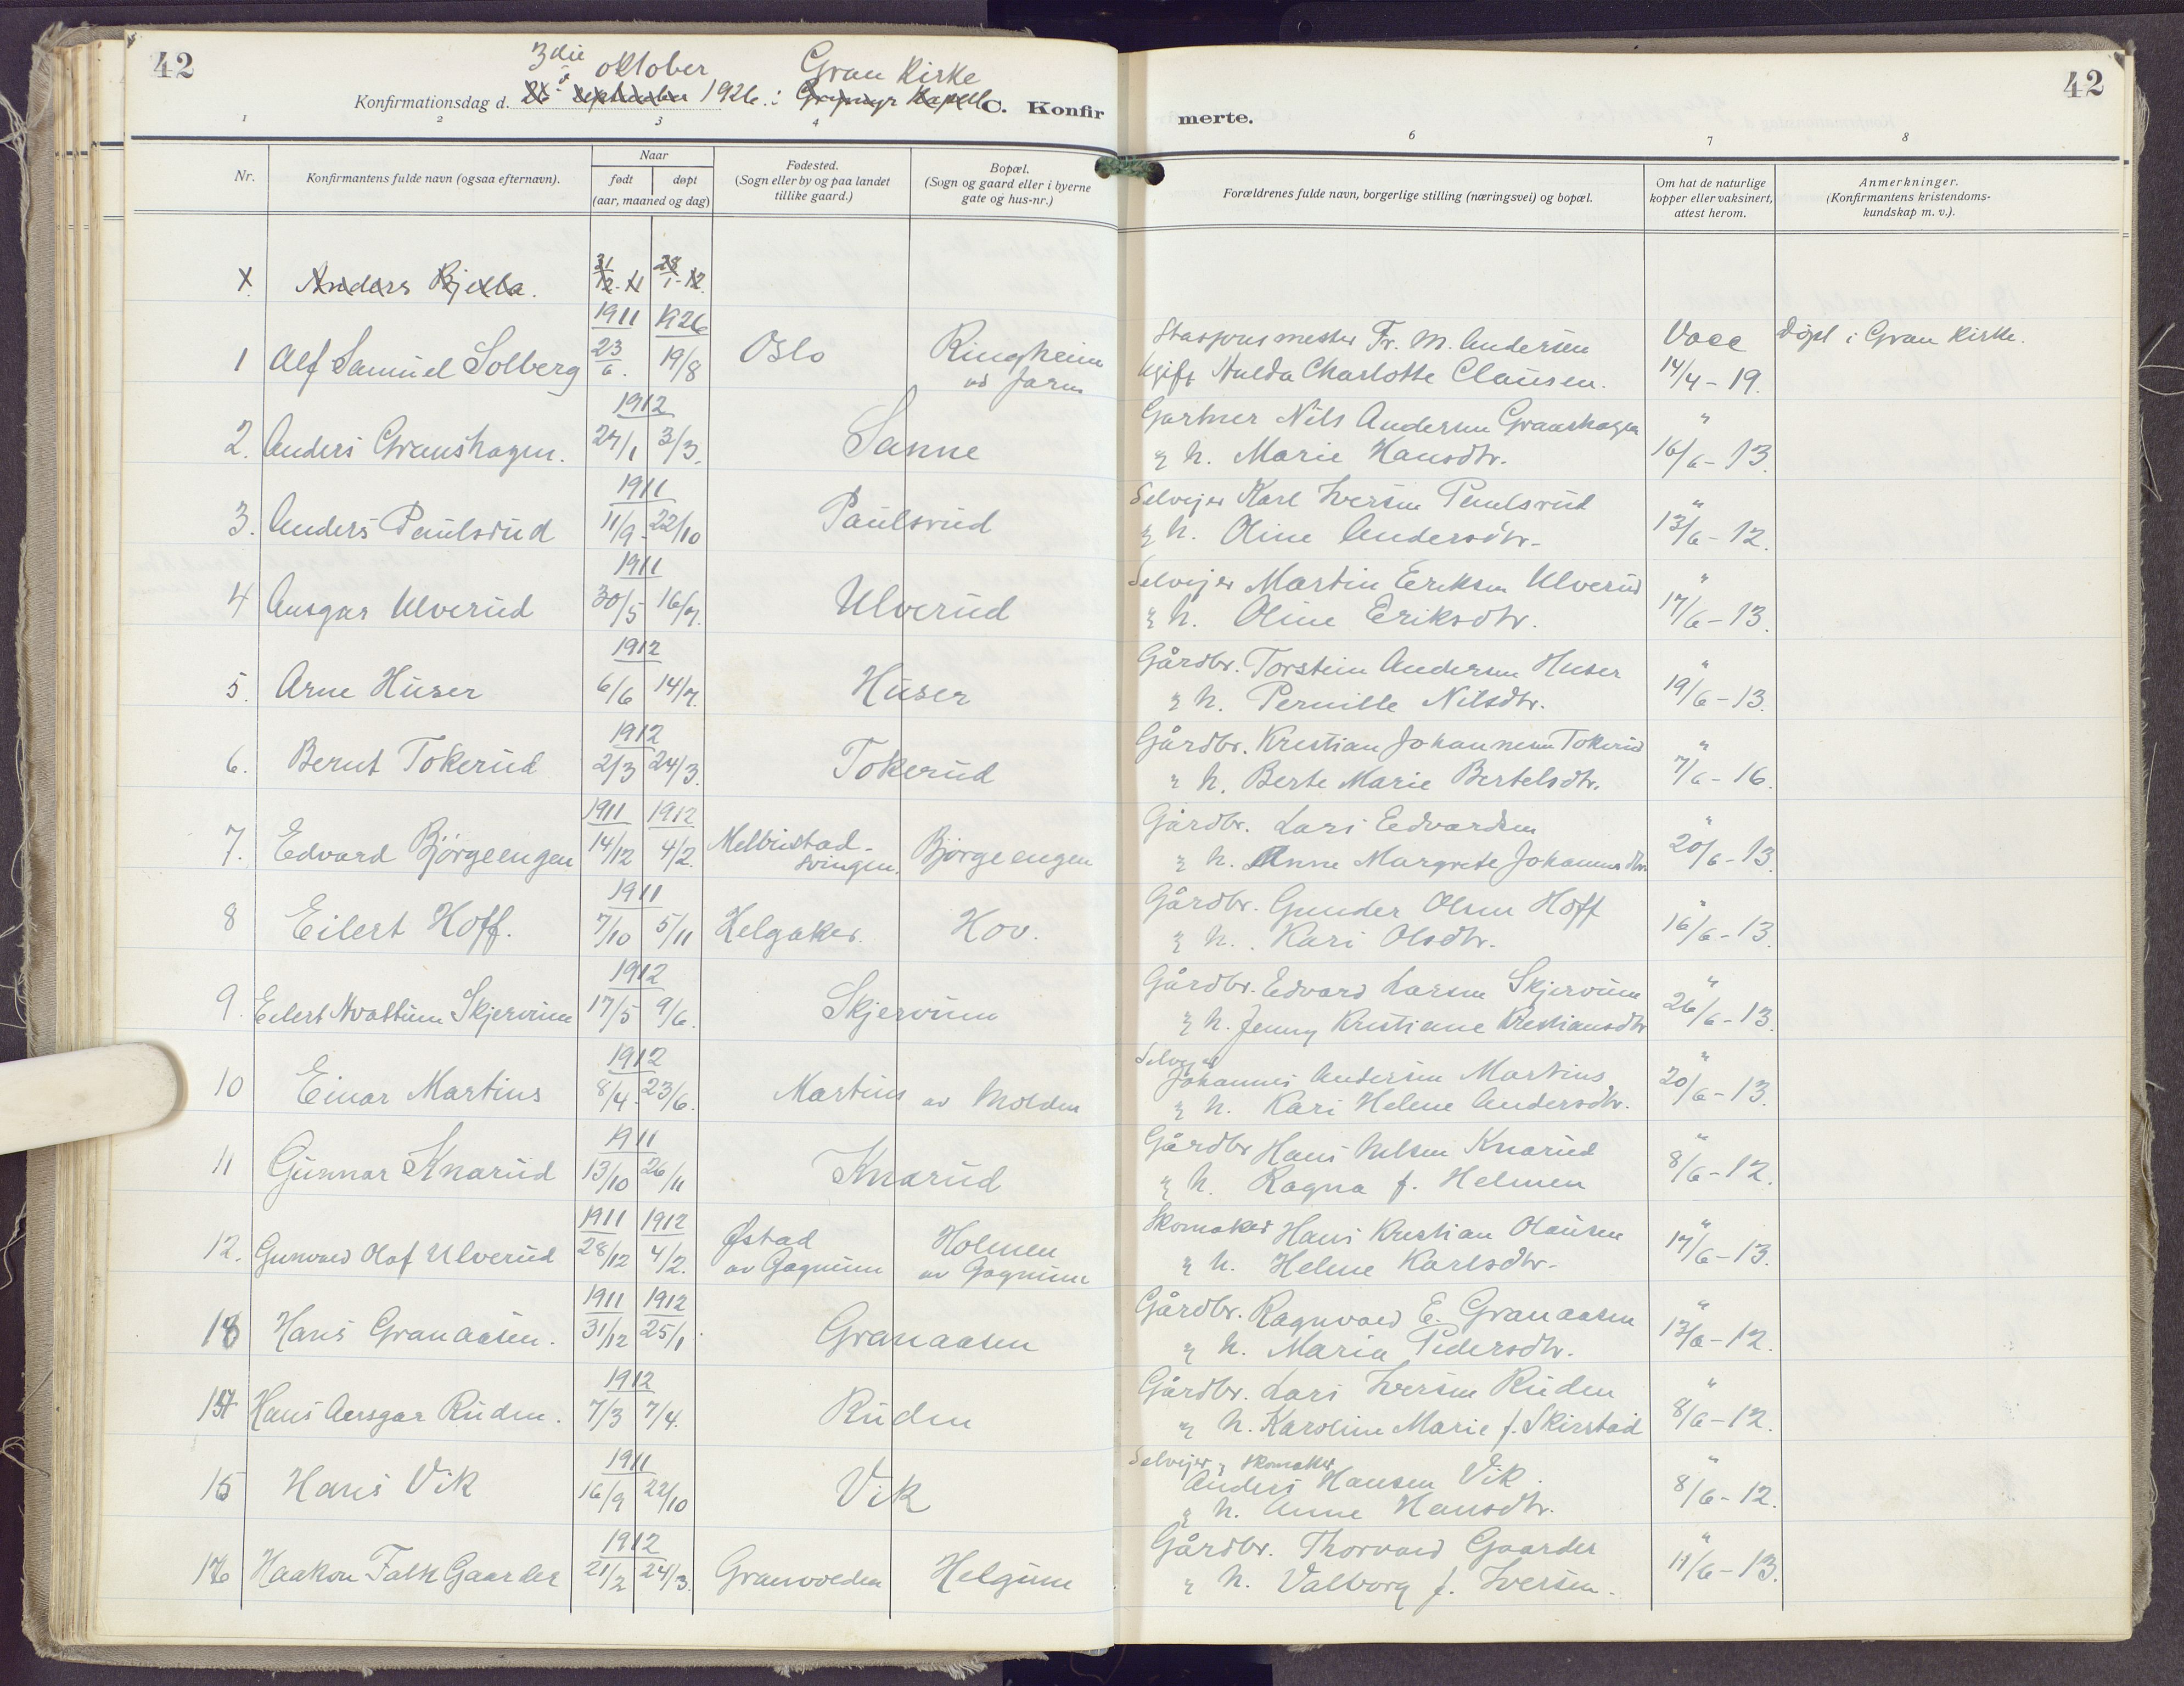 42
3die oktober Gran Kirke
Konfirmationsdag d. 26 september 1926 i Grymyr Kapell C. Konfir
merte.
42
1 2 3 4 6 7 8
Nr.
Konfirmantens fulde navn (ogsaa efternavn).
Naar
født døpt
(aar, maaned og dag)
Fødested.
(Sogn eller by og paa landet
tillike gaard.)
Bopæl.
(Sogn og gaard eller i byerne
gate og hus-nr.)
Forældrenes fulde navn, borgerlige stilling (næringsvei) og bopæl.
Om hat de naturlige
kopper eller vaksinert,
attest herom.
Anmerkninger.
(Konfirmantens kristendoms-
kundskap m. v.).
X. Anders Bjella. 31/12-11 28/1-12.
1911 1926
1 Alf Samuel Solberg 23/6. 19/8 Oslo Ringheim
av Jaren
Stasjonsmester Fr. M. Andersen Vacc Døpt i Gran Kirke.
Ugift Hulda Charlotte Clausen. 14/4-19.
1912
2. Anders Granshagen. 27/1 3/3. Sanne
Gartner Nils Andersen Granshagen "
& h. Marie Hansdtr. 16/6-13.
1911
3. Anders Paulsrud 11/9- 22/10 Paulsrud
Selvejer Karl Iversen Paulsrud "
& h. Oline Andersdtr. 13/6-12.
1911
4 Ansgar Ulverud 30/5 16/7. Ulverud
Selvejer Martin Eriksen Ulverud "
& h. Oline Eriksdtr. 17/6-13.
1912
5. Arne Huser 6/6 14/7. Huser
Gårdbr. Torstein Andersen Huser "
& h. Pernille Nilsdtr. 19/6-13.
1912
6. Bernt Tokerud 2/3 24/3. Tokerud
Gårdbr. Kristian Johannesen Tokerud "
& h. Berte Marie Bertelsdtr. 7/6-16.
1911 1912
7. Edvard Bjørgeengen 14/12 4/2. Melbustad-
svingen. Bjørgeengen
Gårdbr. Lars Edvardsen "
& h. Anne Margrete Johannesdtr. 20/6-13
1911
8 Eilert Hoff. 7/10 5/11 Helgaker. Hov.
Gårdbr. Gunder Olsen Hoff "
& h. Kari Olsdtr. 16/6-13.
1912
9. Eilert Hvattum Skjervum 17/5 9/6. Skjervum
Gårdbr. Edvard Larsen Skjervum "
& h. Jenny Kristiane Kristiansdtr 26/6-13.
1912
10 Einar Martins 8/4- 23/6. Martins av Molden
Selvejer
Johannes Andersen Martins "
& h. Kari Helene Andersdtr. 20/6-13.
1911
11 Gunnar Knarud 13/10 26/11 Knarud
Gårdbr Hans Nilsen Knarud "
& h. Ragna f. Helmen 8/6-12.
1911 1912
12. Gunvald Olaf Ulverud 28/12 4/2. Østad
av Gagnum Holmen
av Gagnum
Skomaker Hans Kristian Olausen "
& h. Helene Karlsdtr. 17/6-13.
1911 1912
13 Hans Granaasen. 31/12 25/1. Granaasen
Gårdbr. Ragnvald E. Granaasen "
& h. Maria Pedersdtr. 13/6-12.
1912
14 Hans Ansgar Ruden. 7/3 7/4. Ruden
Gårdbr. Lars Iversen Ruden "
& h. Karoline Marie f. Skirstad 8/6-12.
1911
15 Hans Vik 16/9 22/10 Vik
Selvejer & skomaker
Anders Hansen Vik. "
& h. Anne Hansdtr. 8/6-12.
1912
16 Haakon Falk Gaarder 21/2 24/3. Granvolden Helgum
Gårdbr. Thorvald Gaarder "
& h. Valborg f. Iversen. 11/6-13.